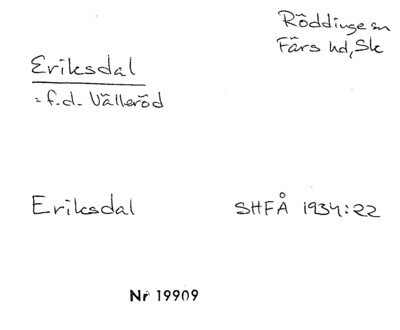 Röddinge sn
Färs hd, Sk
Eriksdal
= f.d. Välleröd
Eriksdal SHFÅ 1934:22
Nr 19909